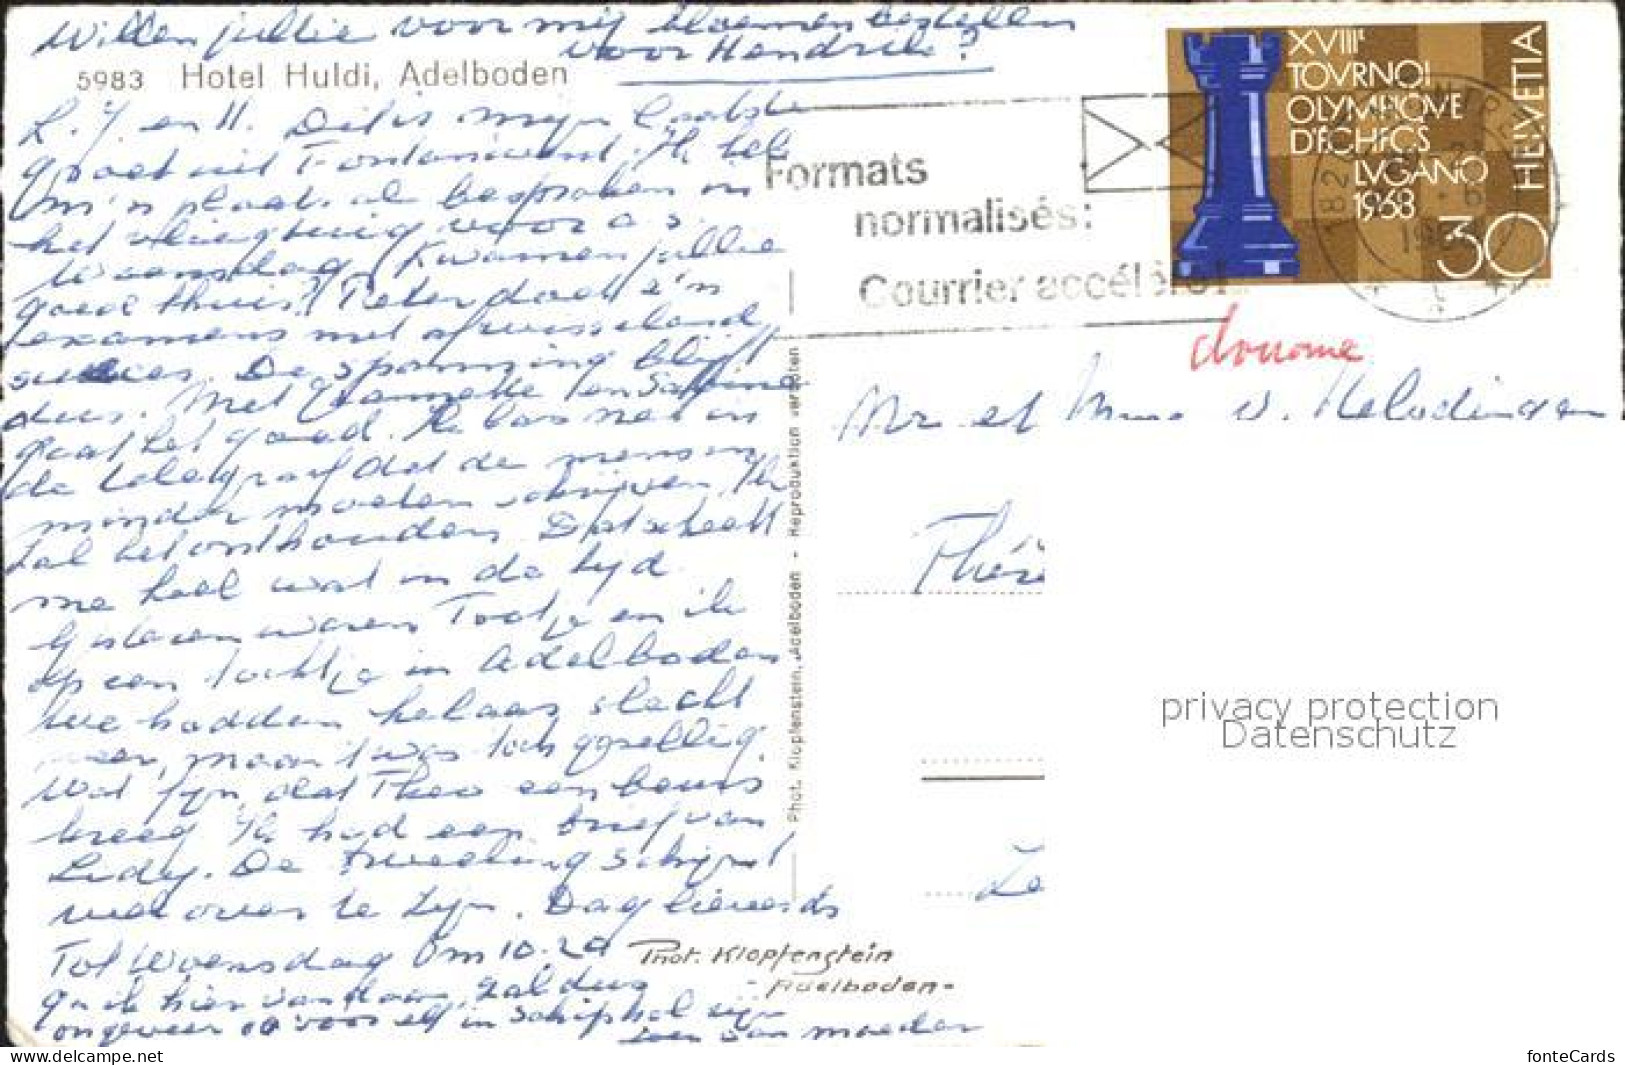 Willen jullie voor mij bloemen bestellen
voor Hendrik?
5983 Hotel Huldi, Adelboden
L. J. en H. Dit is mijn laatste
groet uit Fontanivent. Ik heb
m'n plaats al besproken in
het vliegtuig voor a.s.
Woensdag. Kwamen jullie
goed thuis? Pieter doet z'n
examens met afwisselend
succes. De spanning blijft
dus. Met Jeannette en Sabine
gaat het goed. Ik las net in
de telegraaf dat de mensen
minder moeten schrijven. Ik
zal het onthouden. Dat scheelt
me heel wat in de tijd.
Gisteren waren Tootje en ik
op een tochtje in Adelboden
we hadden helaas slecht
weer, maar 't was toch gezellig.
Wat fijn, dat Theo een beurs
kreeg. Ik had een brief van
Ludy. De tweeling schijnt
wel over te zijn. Dag lieverds
Tot Woensdag Om 10.20
ga ik hier vandaan, zal dus
ongeveer 10 voor elf in Schiphol zijn
zoen van moeder
Phot. Klopfenstein
- Adelboden -
Phot. Klopfenstein, Adelboden - Reproduktion verboten
Formats
normalisés:
Courrier accéléré!
XVIIIe
TOVRNOI
OLYMPIQVE
D'ÉCHECS
LVGANO
1968
HELVETIA
30
douane
Mr et Mme v.
privacy protection
Datenschutz
www.delcampe.net
fonteCards